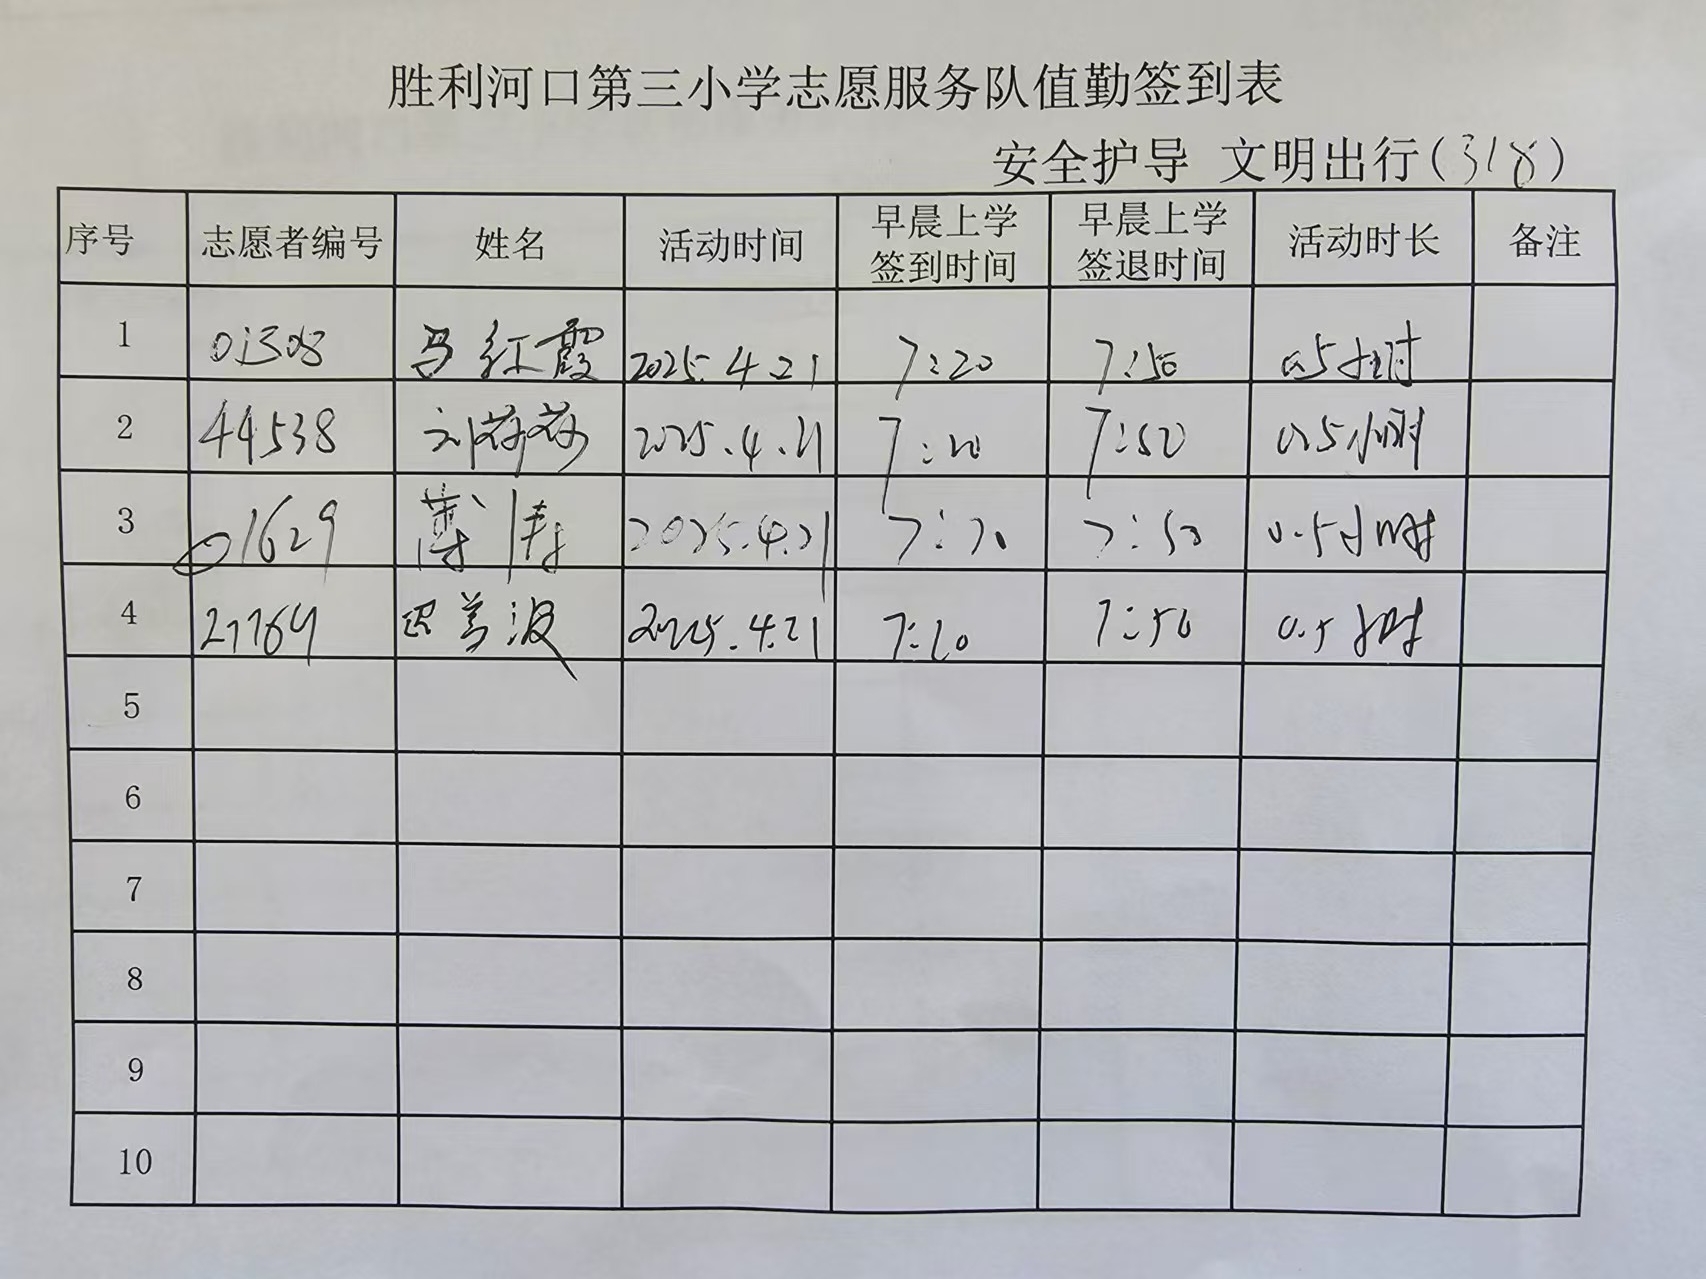 胜利河口第三小学志愿服务队值勤签到表
安全护导 文明出行(318)
序号 志愿者编号 姓名 活动时间 早晨上学签到时间 早晨上学签退时间 活动时长 备注
1 01308 马红霞 2025.4.21 7:20 7:50 0.5小时
2 44538 刘莎莎 2025.4.21 7:20 7:50 0.5小时
3 01629 薄涛 2025.4.21 7:20 7:50 0.5小时
4 21764 波 2025.4.21 7:20 7:50 0.5小时
5
6
7
8
9
10